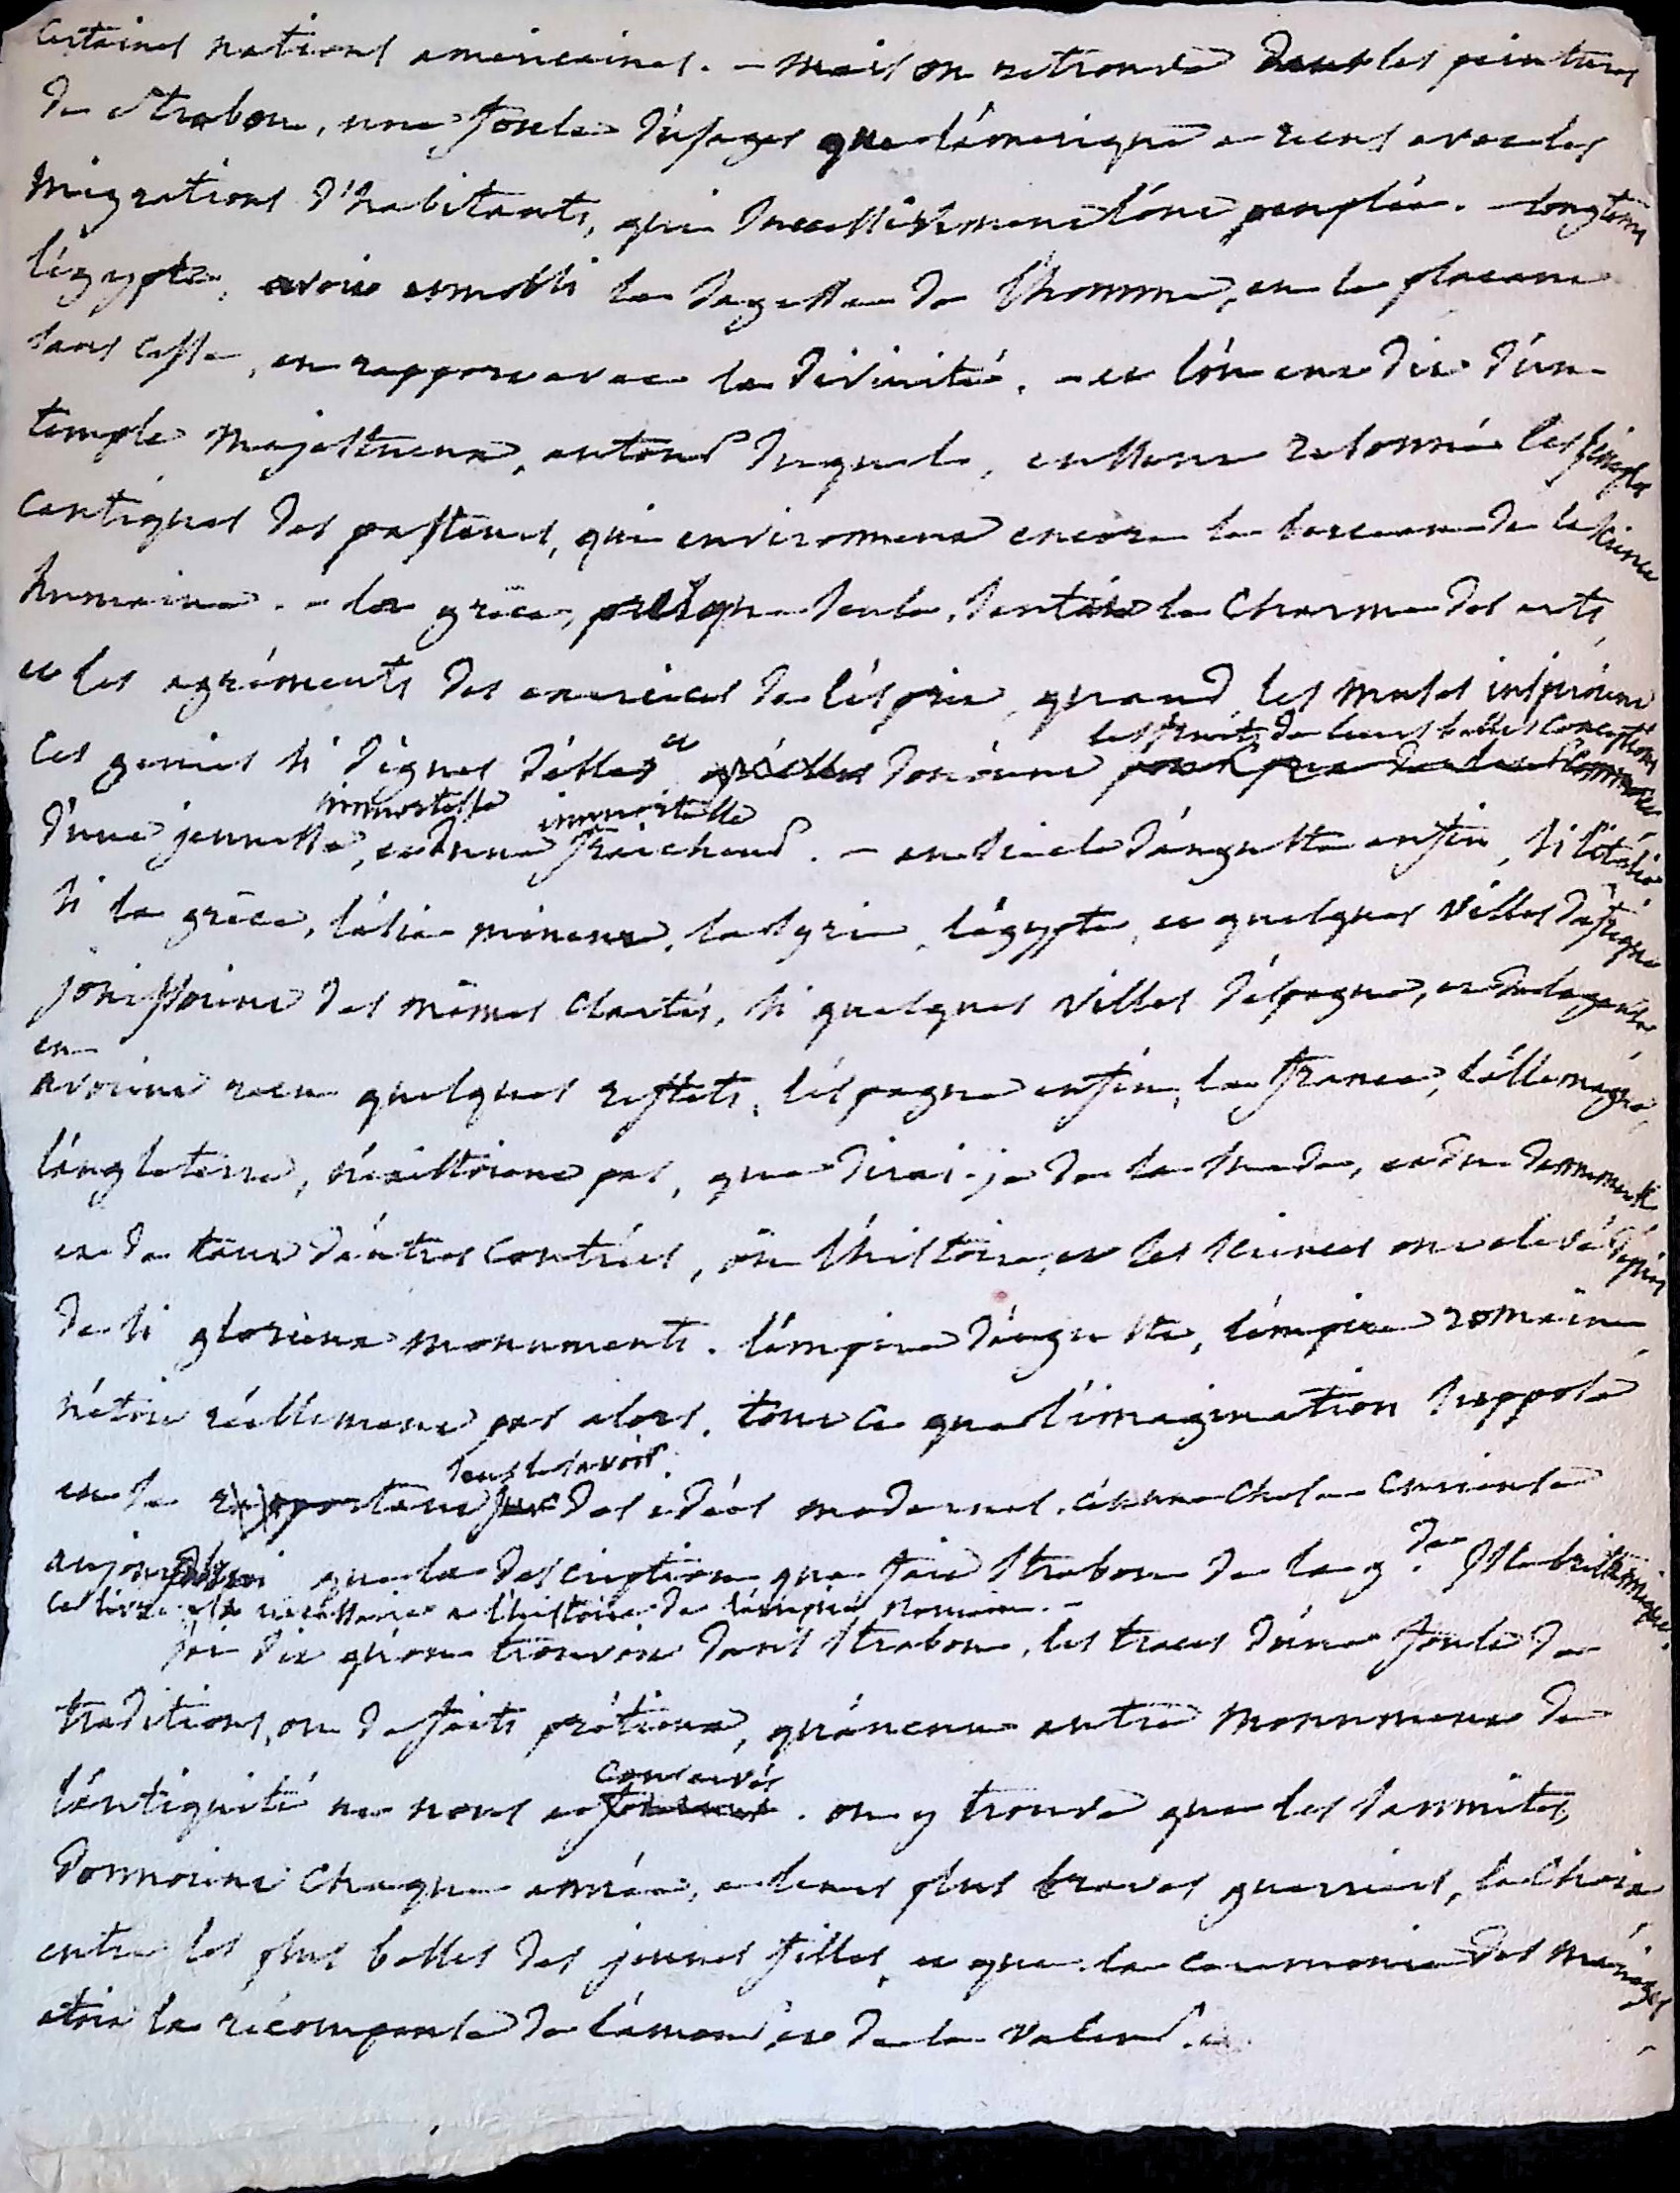 certaines nations americaines. – mais on retrouve dans les peintures
de Strabon, une foule d'usages que l'amerique a reçus avec les
migrations d'habitants, qui successivement l'ont peuplée. – longtems
l'égypte, avoit ennobli la sagesse de l'homme, en le placant
sans cesse, en rapport avec la divinité. – et l'on eut dit d'un
temple majestueux, autour duquel, eussent resonné les simples
cantiques des pasteurs, qui environnent encore le berceau de la science
humaine. – la grèce, presque seule, sentait le charme des arts,
et les agréments des exercices de l'ésprit, quand les muses inspiroient
les fruits de leurs belles conceptions
ces genies si dignes d'elles et douoient
immortelle immortelle
d'une jeunesse, et d'une fraicheur. – au siecle d'auguste enfin, si l'italie
si la grèce, l'asie mineure, la syrie, l'égypte, et quelques villes d'afrique
jouissoient des mêmes clartés, si quelques villes d'éspagne, et de la gaule
en
avoient recu quelques reflets, l'éspagne enfin, la france, l'allemagne,
l'angleterre, n'existoient pas, que dirai-je de la suede, et du dannemark
et de tant d'autres contrées, où l'histoire, et les sciences ont elevé depuis
de si glorieux monuments. l'empire d'auguste, l'empire romain
n'étoit réellement pas alors, tout ce que l'imagination suppose
sans le savoir
en le rapportant des idées modernes. c'est une chose curieuse
aujourdhui que la description que fait Strabon de la gde isle britannique.
ce livre est necessaire a l'histoire de l'empire romain. –
j'ai dit qu'on trouvoit dans Strabon, les traces d'une foule de
traditions, ou de faits prétieux, qu'aucun autre monument de
conservés
l'antiquité ne nous a. on y trouve que les samnites,
donnoient chaque année, a leurs plus braves guerriers, le choix
entre les plus belles des jeunes filles, et que la ceremonie des mariages
etoit la récompense de l'amour, et de la valeur. –